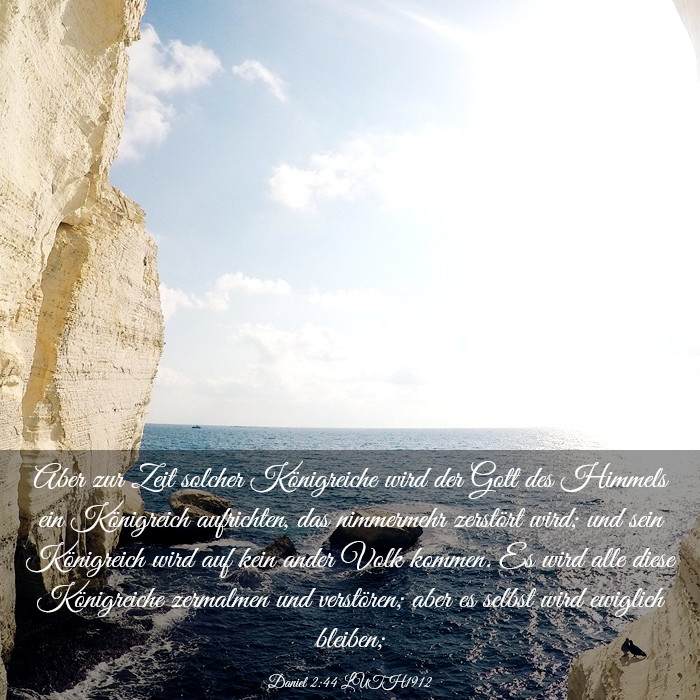 Aber zur Zeit solcher Königreiche wird der Gott des Himmels
ein Königreich aufrichten, das nimmermehr zerstört wird; und sein
Königreich wird auf kein ander Volk kommen. Es wird alle diese
Königreiche zermalmen und verstören; aber es selbst wird ewiglich
bleiben;
Daniel 2:44 LUTH1912